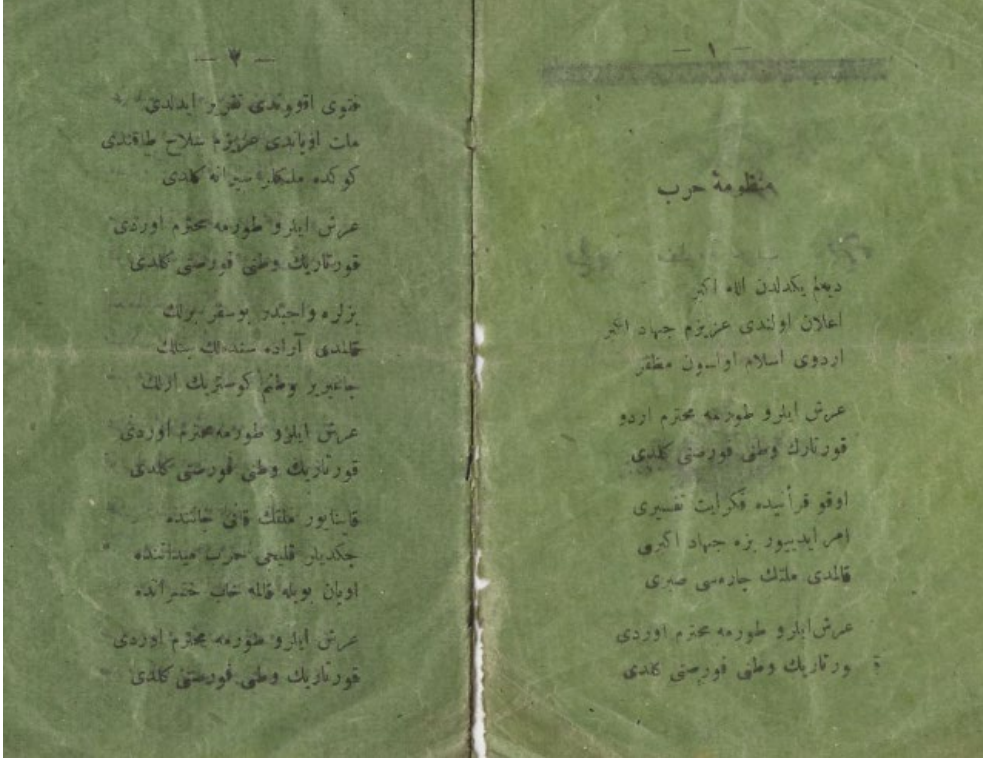 — ١ —
منظومهٔ حرب
ديهلم يكدلدن الله اكبر
اعلان اولندى عزيزم جهاد اكبر
اردوى اسلام اواسون مظفر
عرش ايلرو طورمه محترم اردو
قورتارك وطنى فورصتى كلدى
اوقو قرأنيده فكرايت تفسيرى
امر ايدييور بزه جهاد اكبرى
قالمدى ملتك چارهسى صبرى
عرش ايلرو طورمه محترم اوردى
ورتاريك وطنى فورصتى كلدى
— ٢ —
فتوى اقووندى تقرير ايدلدى
ملت اوياندى عزيزم سلاح طاقندى
كوكده ملكلر سيرانه كلدى
عرش ايلرو طورمه محترم اوردى
قورتاريك وطنى فورصتى كلدى
بزلره واجبدر بوسفر برلك
قلندى آراده سنلك بنلك
چاغيرير وطنم كوستريك ارلك
عرش ايلرو طورمه محترم اوردى
قورتاريك وطنى فورصتى كلدى
قاينايور ملتك قانى جاننده
چكديلر قليجى حرب ميداننده
اويان بويله قالمه خاب
عرش ايلرو طورمه محترم اوردى
قورتاريك وطنى فورصتى كلدى